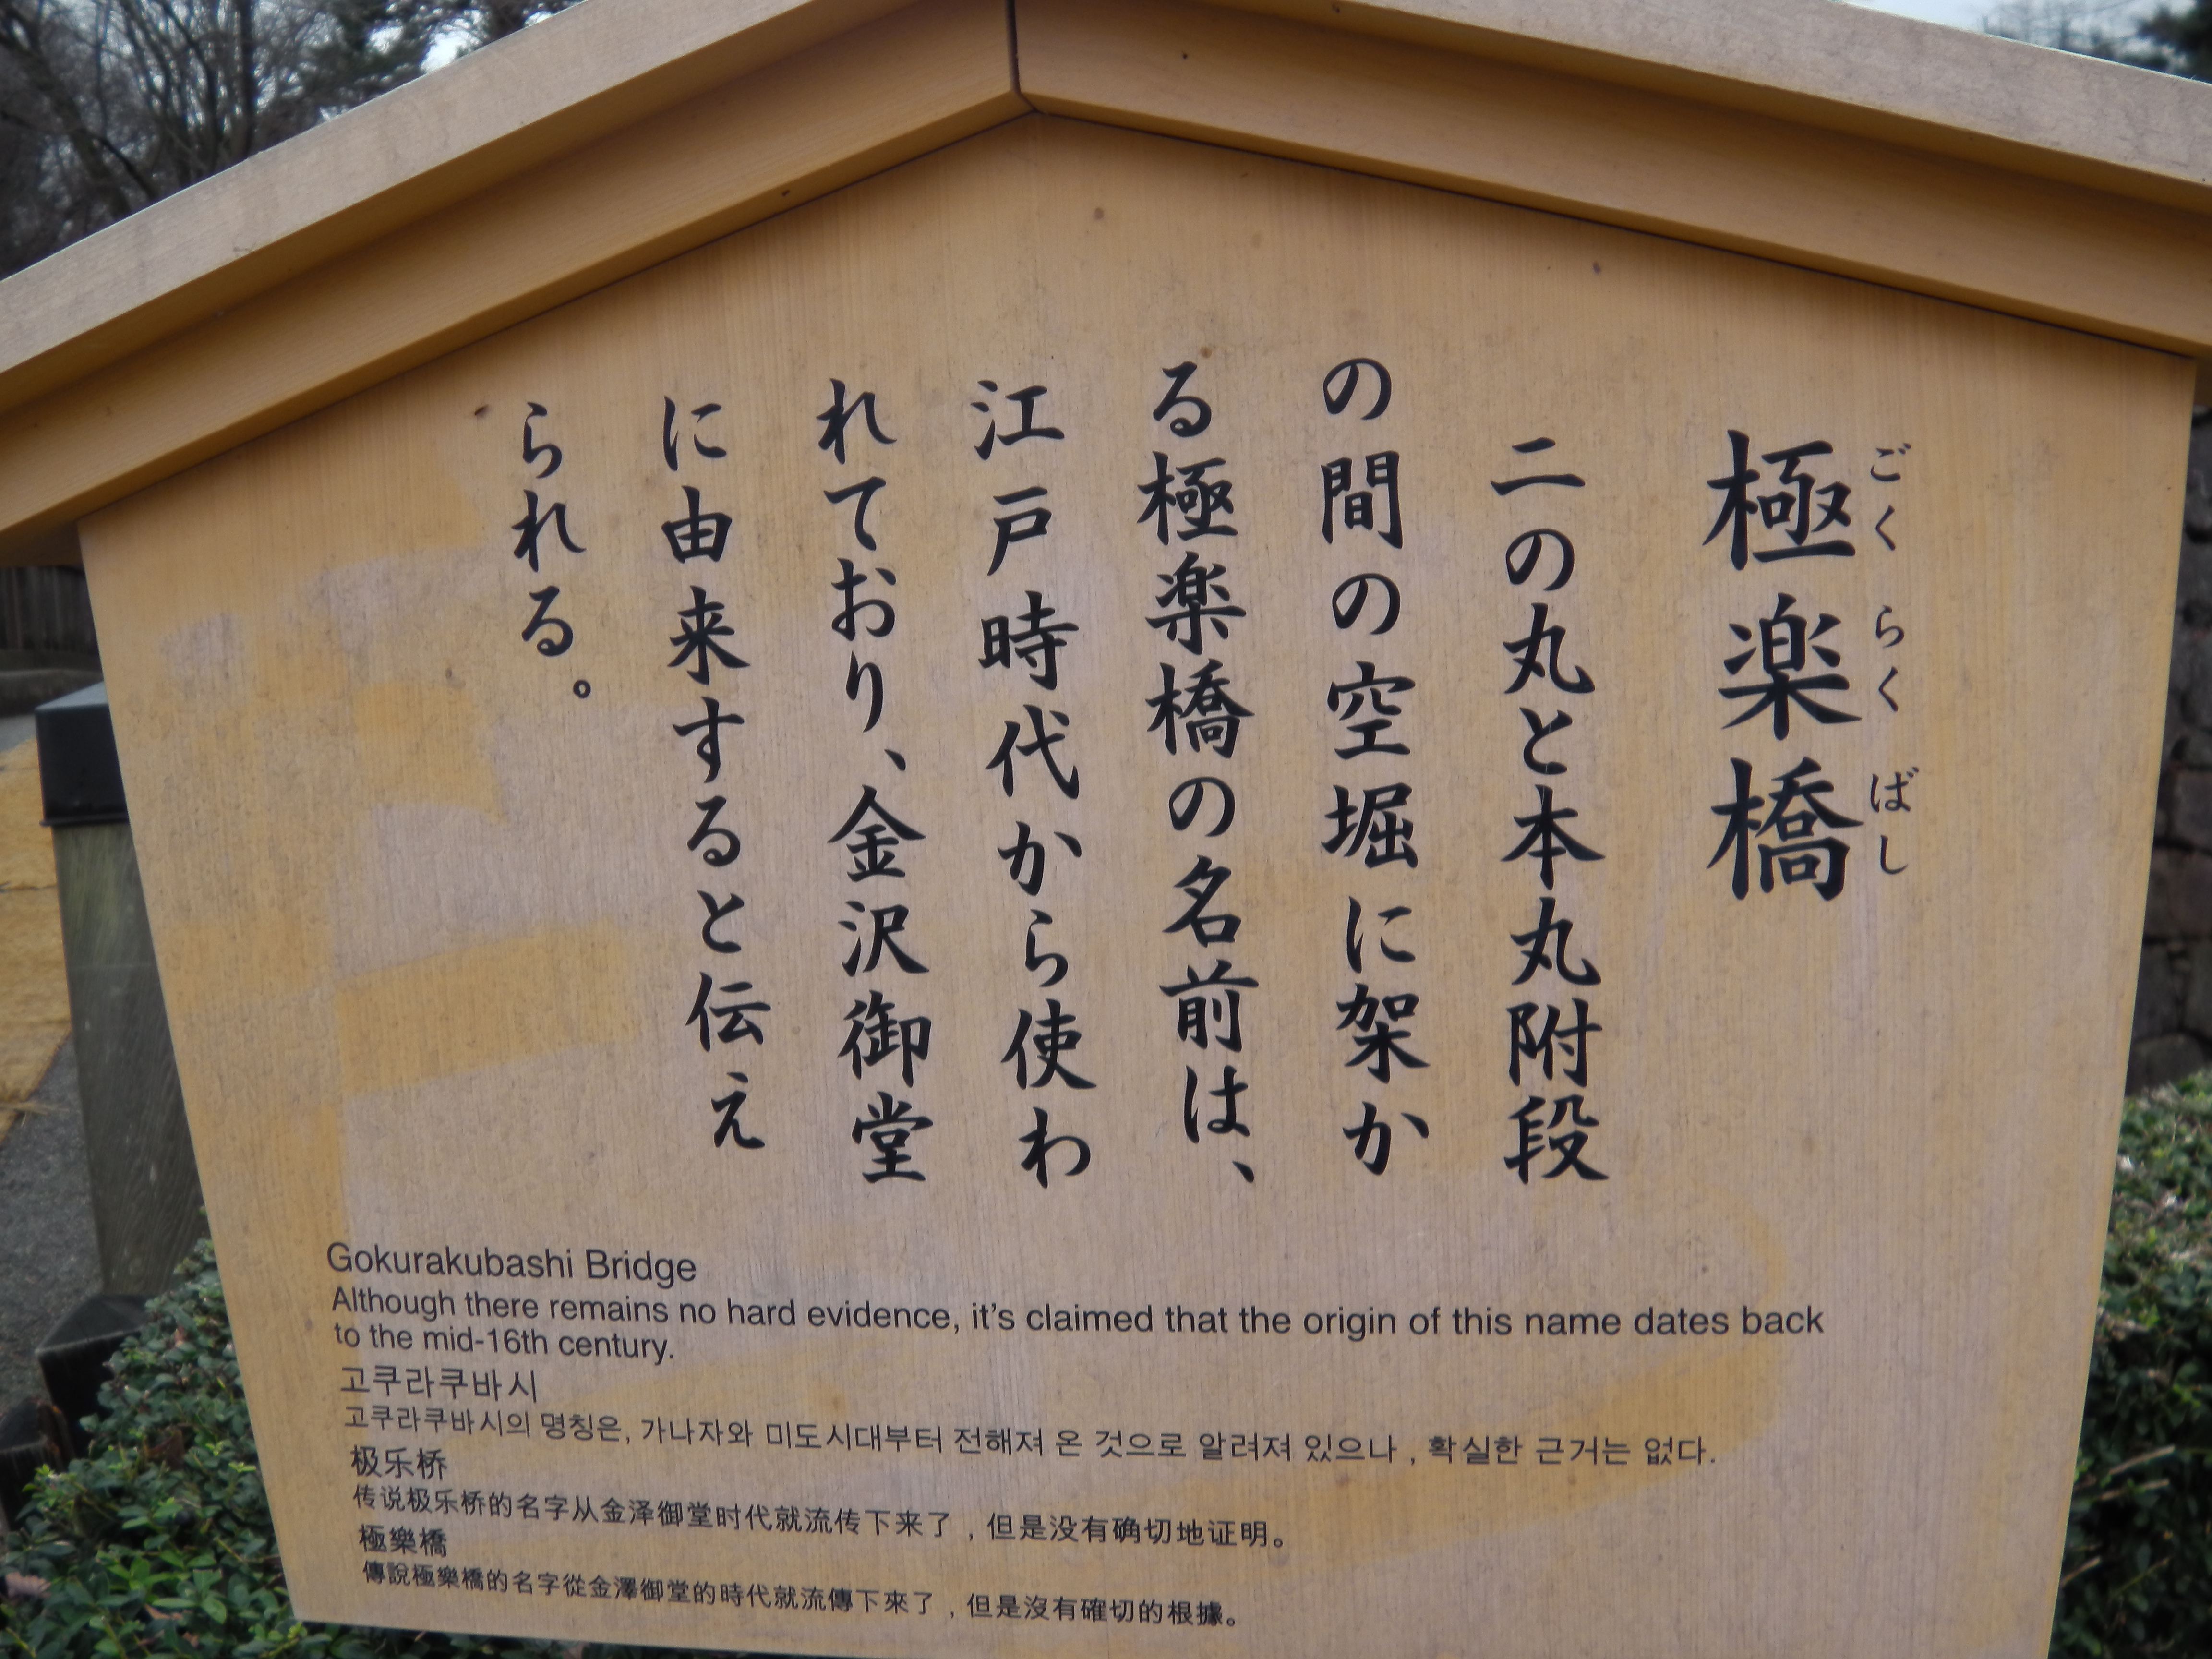 極楽橋
ごくらくばし
二の丸と本丸附段
の間の空堀に架か
る極楽橋の名前は、
江戸時代から使わ
れており、金沢御堂
に由来すると伝え
られる。
Gokurakubashi Bridge
Although there remains no hard evidence, it's claimed that the origin of this name dates back
to the mid-16th century.
고쿠라쿠바시
고쿠라쿠바시의 명칭은, 가나자와 미도시대부터 전해져 온 것으로 알려져 있으나 , 확실한 근거는 없다.
极乐桥
传说极乐桥的名字从金泽御堂时代就流传下来了，但是没有确切地证明。
極樂橋
傳說極樂橋的名字從金澤御堂的時代就流傳下來了，但是沒有確切的根據。